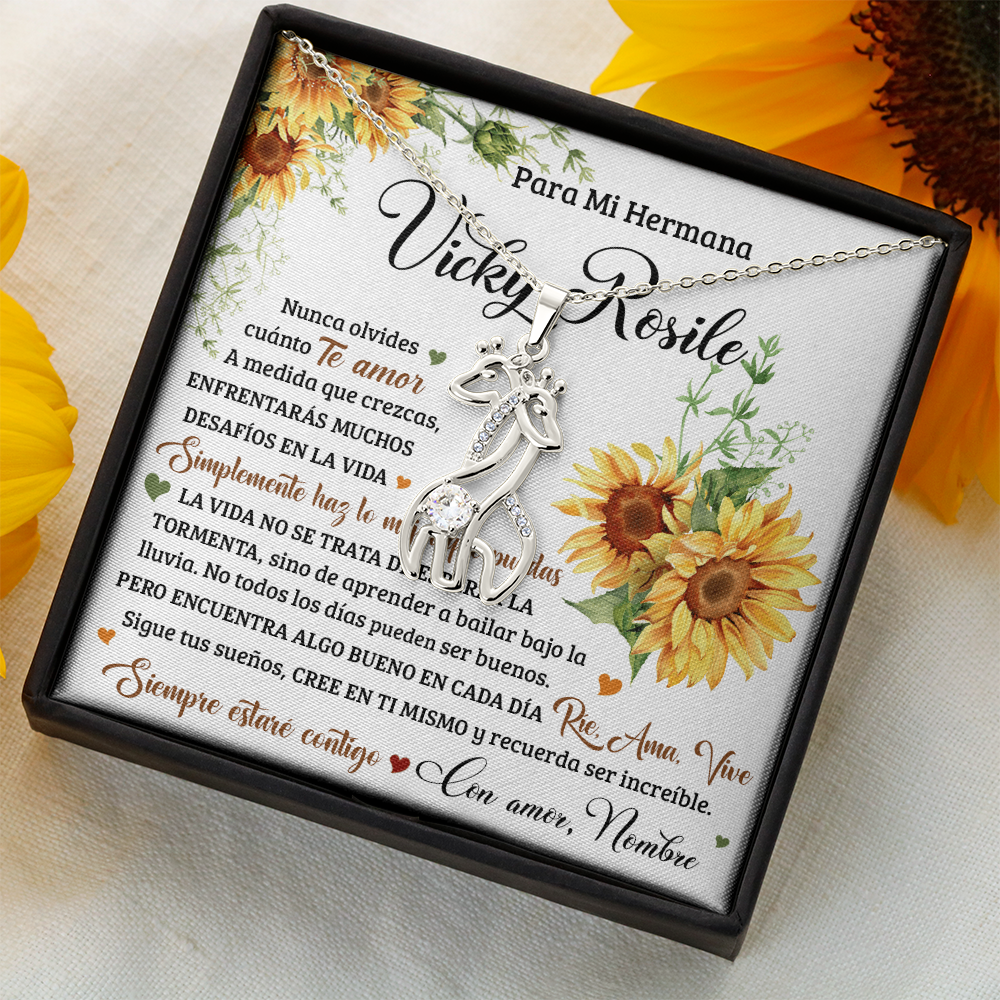 Para Mi Hermana
Vicky Rosile
Nunca olvides
cuánto Te amor
A medida que crezcas,
ENFRENTARÁS MUCHOS
DESAFÍOS EN LA VIDA
Simplemente haz lo
LA VIDA NO SE TRATA LA
TORMENTA, sino de aprender a bailar bajo la
lluvia. No todos los días pueden ser buenos.
PERO ENCUENTRA ALGO BUENO EN CADA DÍA Rie, Ama, Vive
Sigue tus sueños, CREE EN TI MISMO y recuerda ser increíble.
Siempre estaré contigo Con amor, Nombre